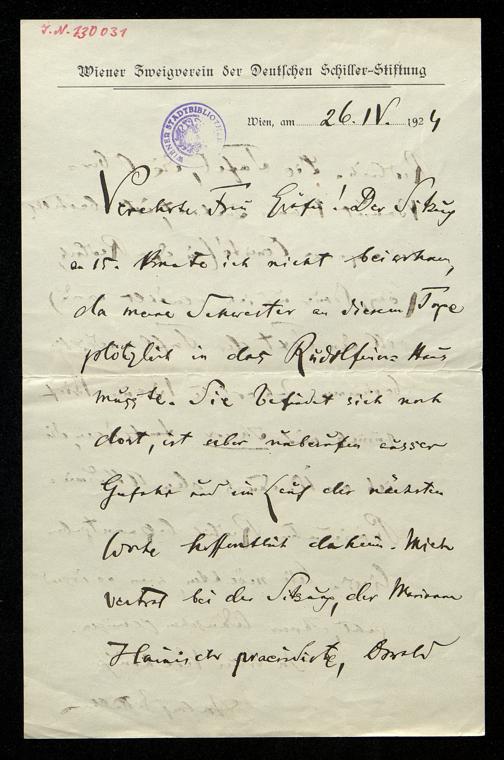 J.N. 230031
Wiener Zweigverein der Deutschen Schiller-Stiftung
WIENER STADTBIBLIOTHEK
Wien, am 26. IV. 1924
Verehrte Frau Gräfin! Der Sitzung
am 15. konnte ich nicht beiwohnen,
da meine Schwester an diesem Tage
plötzlich in das Rudolfiner-Haus
musste. Sie befindet sich noch
dort, ist aber unberufen ausser
Gefahr und im Lauf der nächsten
Woche hoffentlich daheim. Mich
vertrat bei der Sitzung, der Marianne
Hainisch praesidirte, Oswald